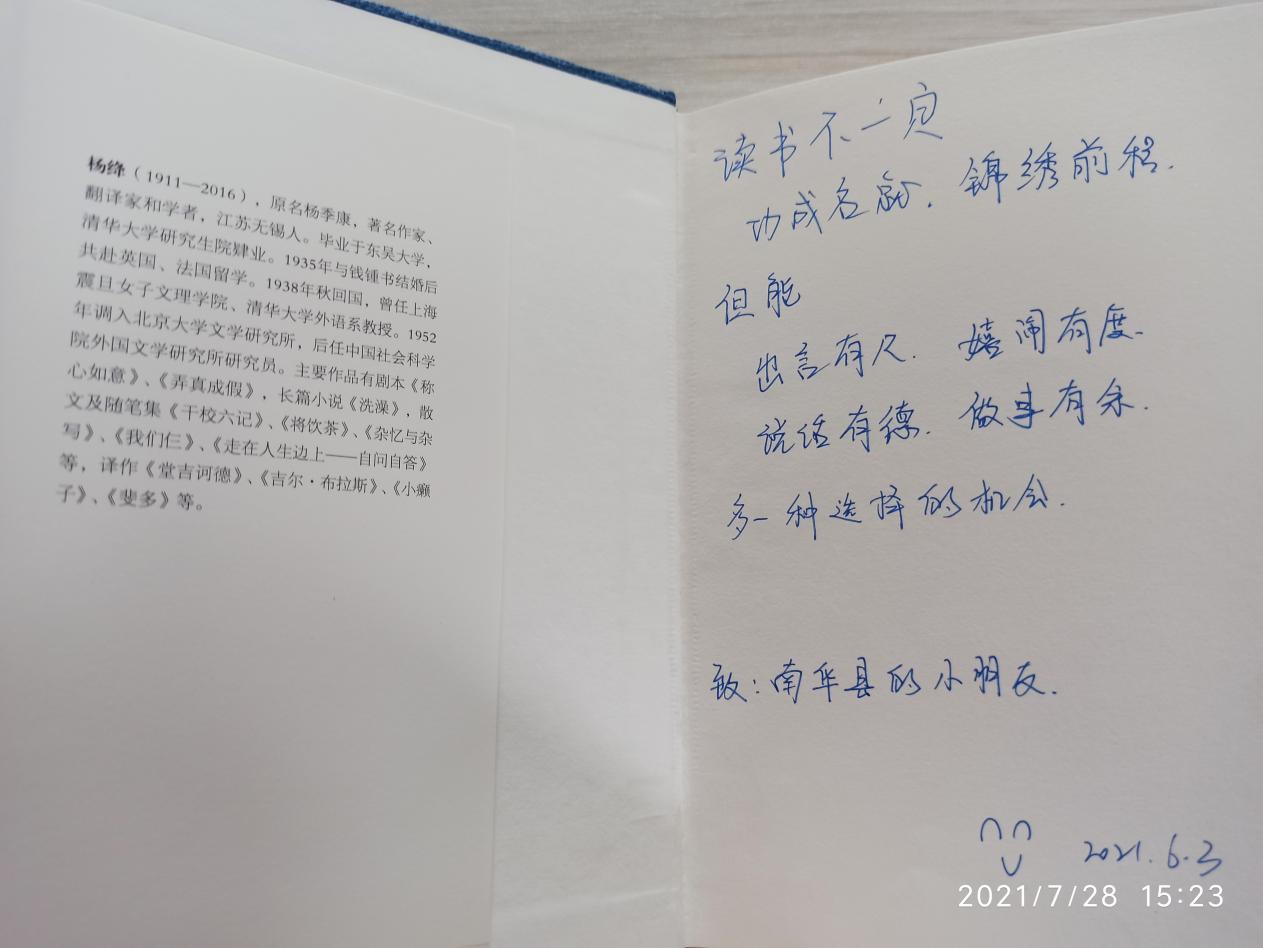 杨绛（1911—2016），原名杨季康，著名作家、
翻译家和学者，江苏无锡人。毕业于东吴大学，
清华大学研究生院肄业。1935年与钱锺书结婚后
共赴英国、法国留学。1938年秋回国，曾任上海
震旦女子文理学院、清华大学外语系教授。1952
年调入北京大学文学研究所，后任中国社会科学
院外国文学研究所研究员。主要作品有剧本《称
心如意》、《弄真成假》，长篇小说《洗澡》，散
文及随笔集《干校六记》、《将饮茶》、《杂忆与杂
写》、《我们仨》、《走在人生边上——自问自答》
等，译作《堂吉诃德》、《吉尔·布拉斯》、《小癞
子》、《斐多》等。
读书不一定
功成名就. 锦绣前程.
但能
出言有尺. 嬉闹有度.
说话有德. 做事有余.
多一种选择的机会.
致: 南华县的小朋友.
2021.6.3
2021/7/28 15:23